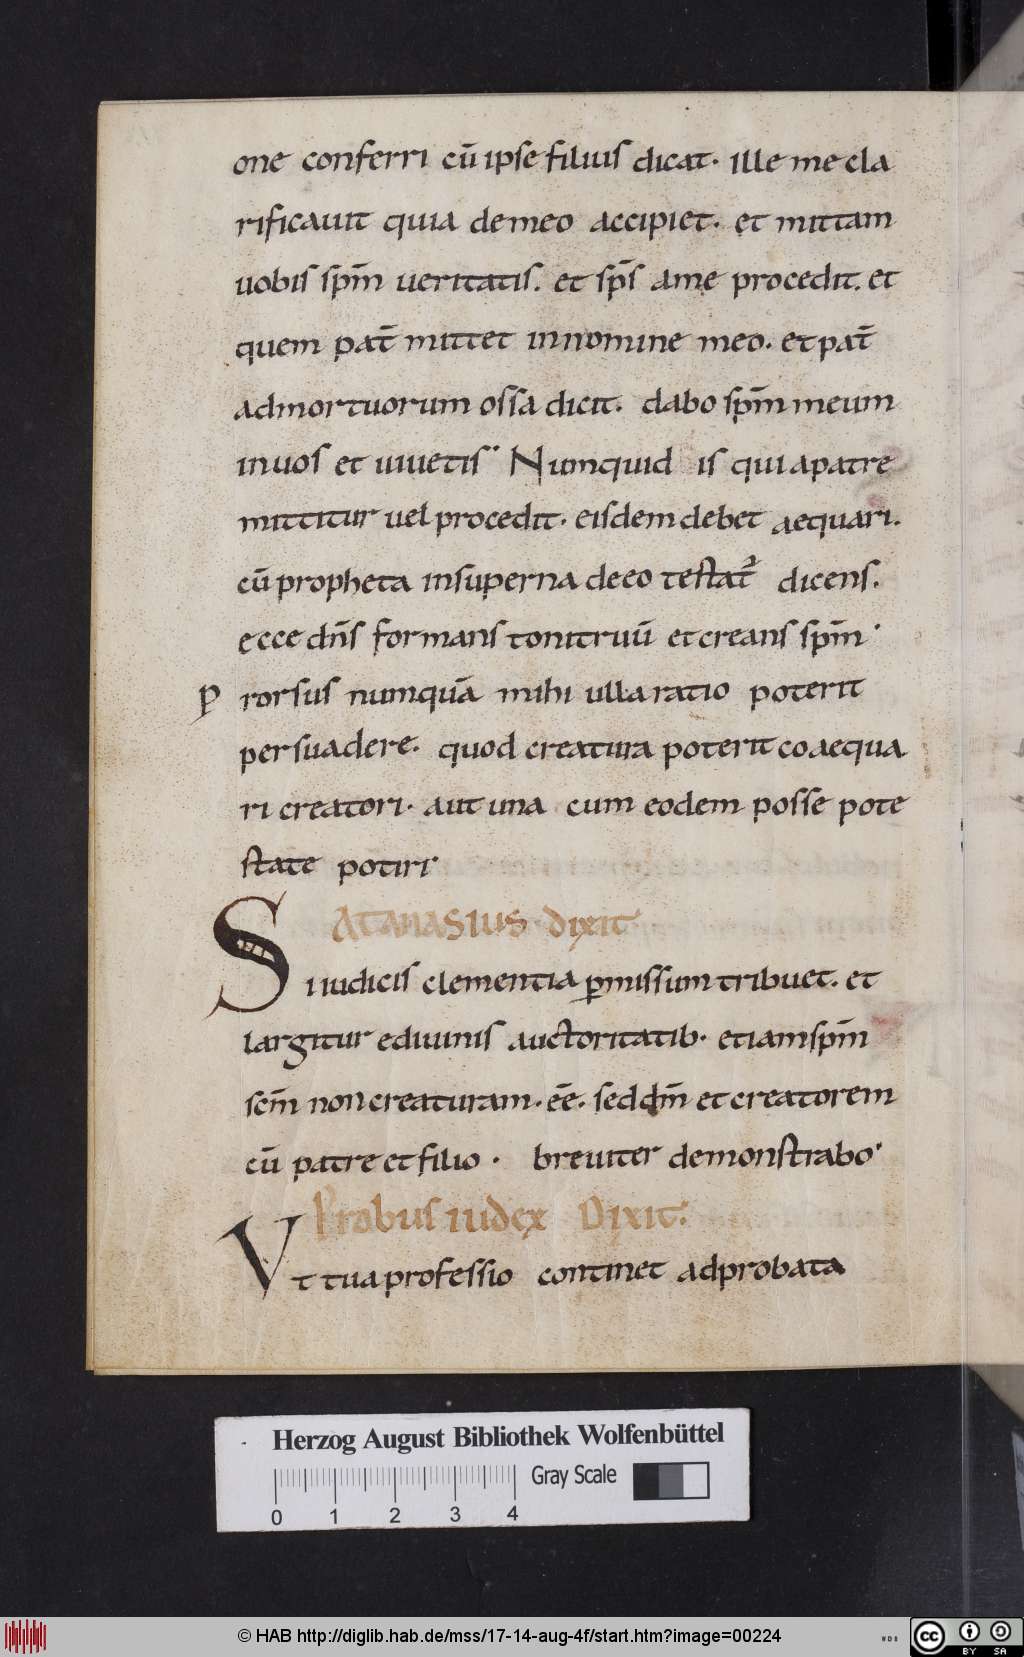 one conferri cū ipse filius dicat· ille me cla
rificauit quia demeo accipiet· et mittam
uobis sp̄m ueritatis. et sp̄s ame procedit. et
quem pat̄ mittet innomine meo· et pat̄
admortuorum ossa dicit· dabo sp̄m meum
inuos et uiuetis¨ Numquid is qui apatre
mittitur uel procedit· eisdem debet aequari.
cū propheta insuperna deeo testat᷒ dicens.
ecce dn̄s formans tonitruū et creans sp̄m·
P rorsus numquā mihi ulla ratio poterit
persuadere· quod creatura poterit coaequa
ri creatori· aut una cum eodem posse pote
state potiri
ATANASIUS dixit
Si iudicis clementia ꝑmissum tribuet. et
largitur ediuinis auctoritatib· etiam sp̄m
scm̄ non creaturam· eē. sed dm̄ et creatorem
cū patre et filio · breuiter demonstrabo·
Probus iudex Dixit:
Vt tua professio continet adprobata
Herzog August Bibliothek Wolfenbüttel
Gray Scale
0 1 2 3 4
© HAB http://diglib.hab.de/mss/17-14-aug-4f/start.htm?image=00224
WDB
cc BY SA